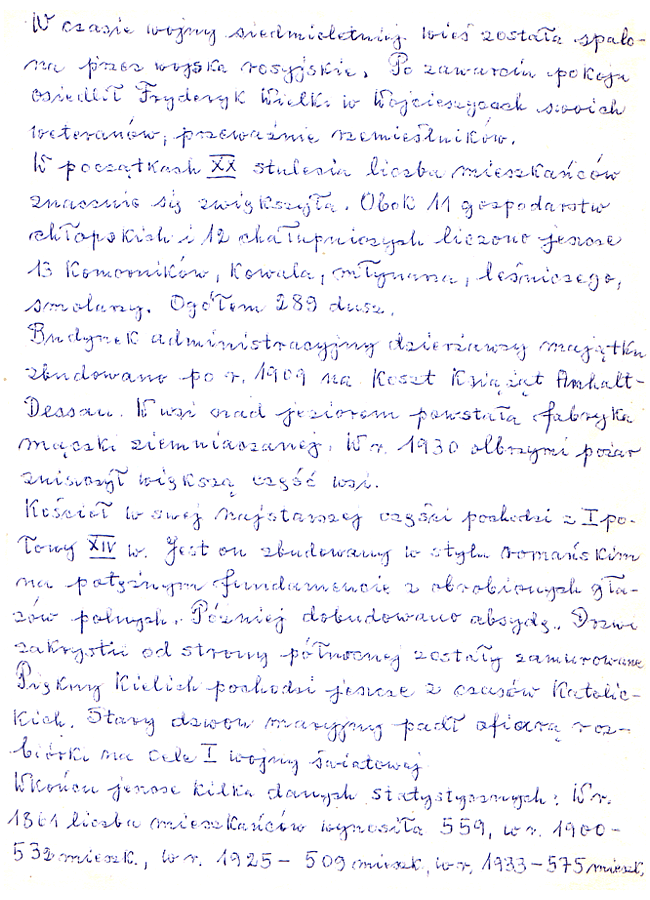 W czasie wojny siedmioletniej wieś została spalo-
na przez wojska rosyjskie. Po zawarciu pokoju
osiedlił Fryderyk Wielki w Wojcieszycach swoich
weteranów, przeważnie rzemieślników.
W początkach XX stulecia liczba mieszkańców
znacznie się zwiększyła. Obok 11 gospodarstw
chłopskich i 12 chałupniczych liczono jeszcze
13 Komorników, Kowala, młynarza, leśniczego,
smolarzy. Ogółem 289 dusz.
Budynek administracyjny dzierżawcy majątku
zbudowano po r. 1909 na Koszt Książąt Anhalt-
Dessau. W wsi nad jeziorem powstała fabryka
mączki ziemniaczanej. W r. 1930 olbrzymi pożar
zniszczył większą część wsi.
Kościół w swej najstarszej części pochodzi z I po-
łowy XIV w. Jest on zbudowany w stylu romańskim
na potężnym fundamencie z obrobionych gła-
zów polnych. Później dobudowano absydę. Drzwi
zakrystii od strony północnej zostały zamurowane
Piękny Kielich pochodzi jeszcze z czasów Katolic-
kich. Stary dzwon maryjny padł ofiarą roz-
biórki na cele I wojny światowej
Wkońcu jeszcze kilka danych statystycznych: W r.
1861 liczba mieszkańców wynosiła 559, w r. 1900-
532 mieszk., w r. 1925 - 509 mieszk., w r. 1933 - 575 mieszk.